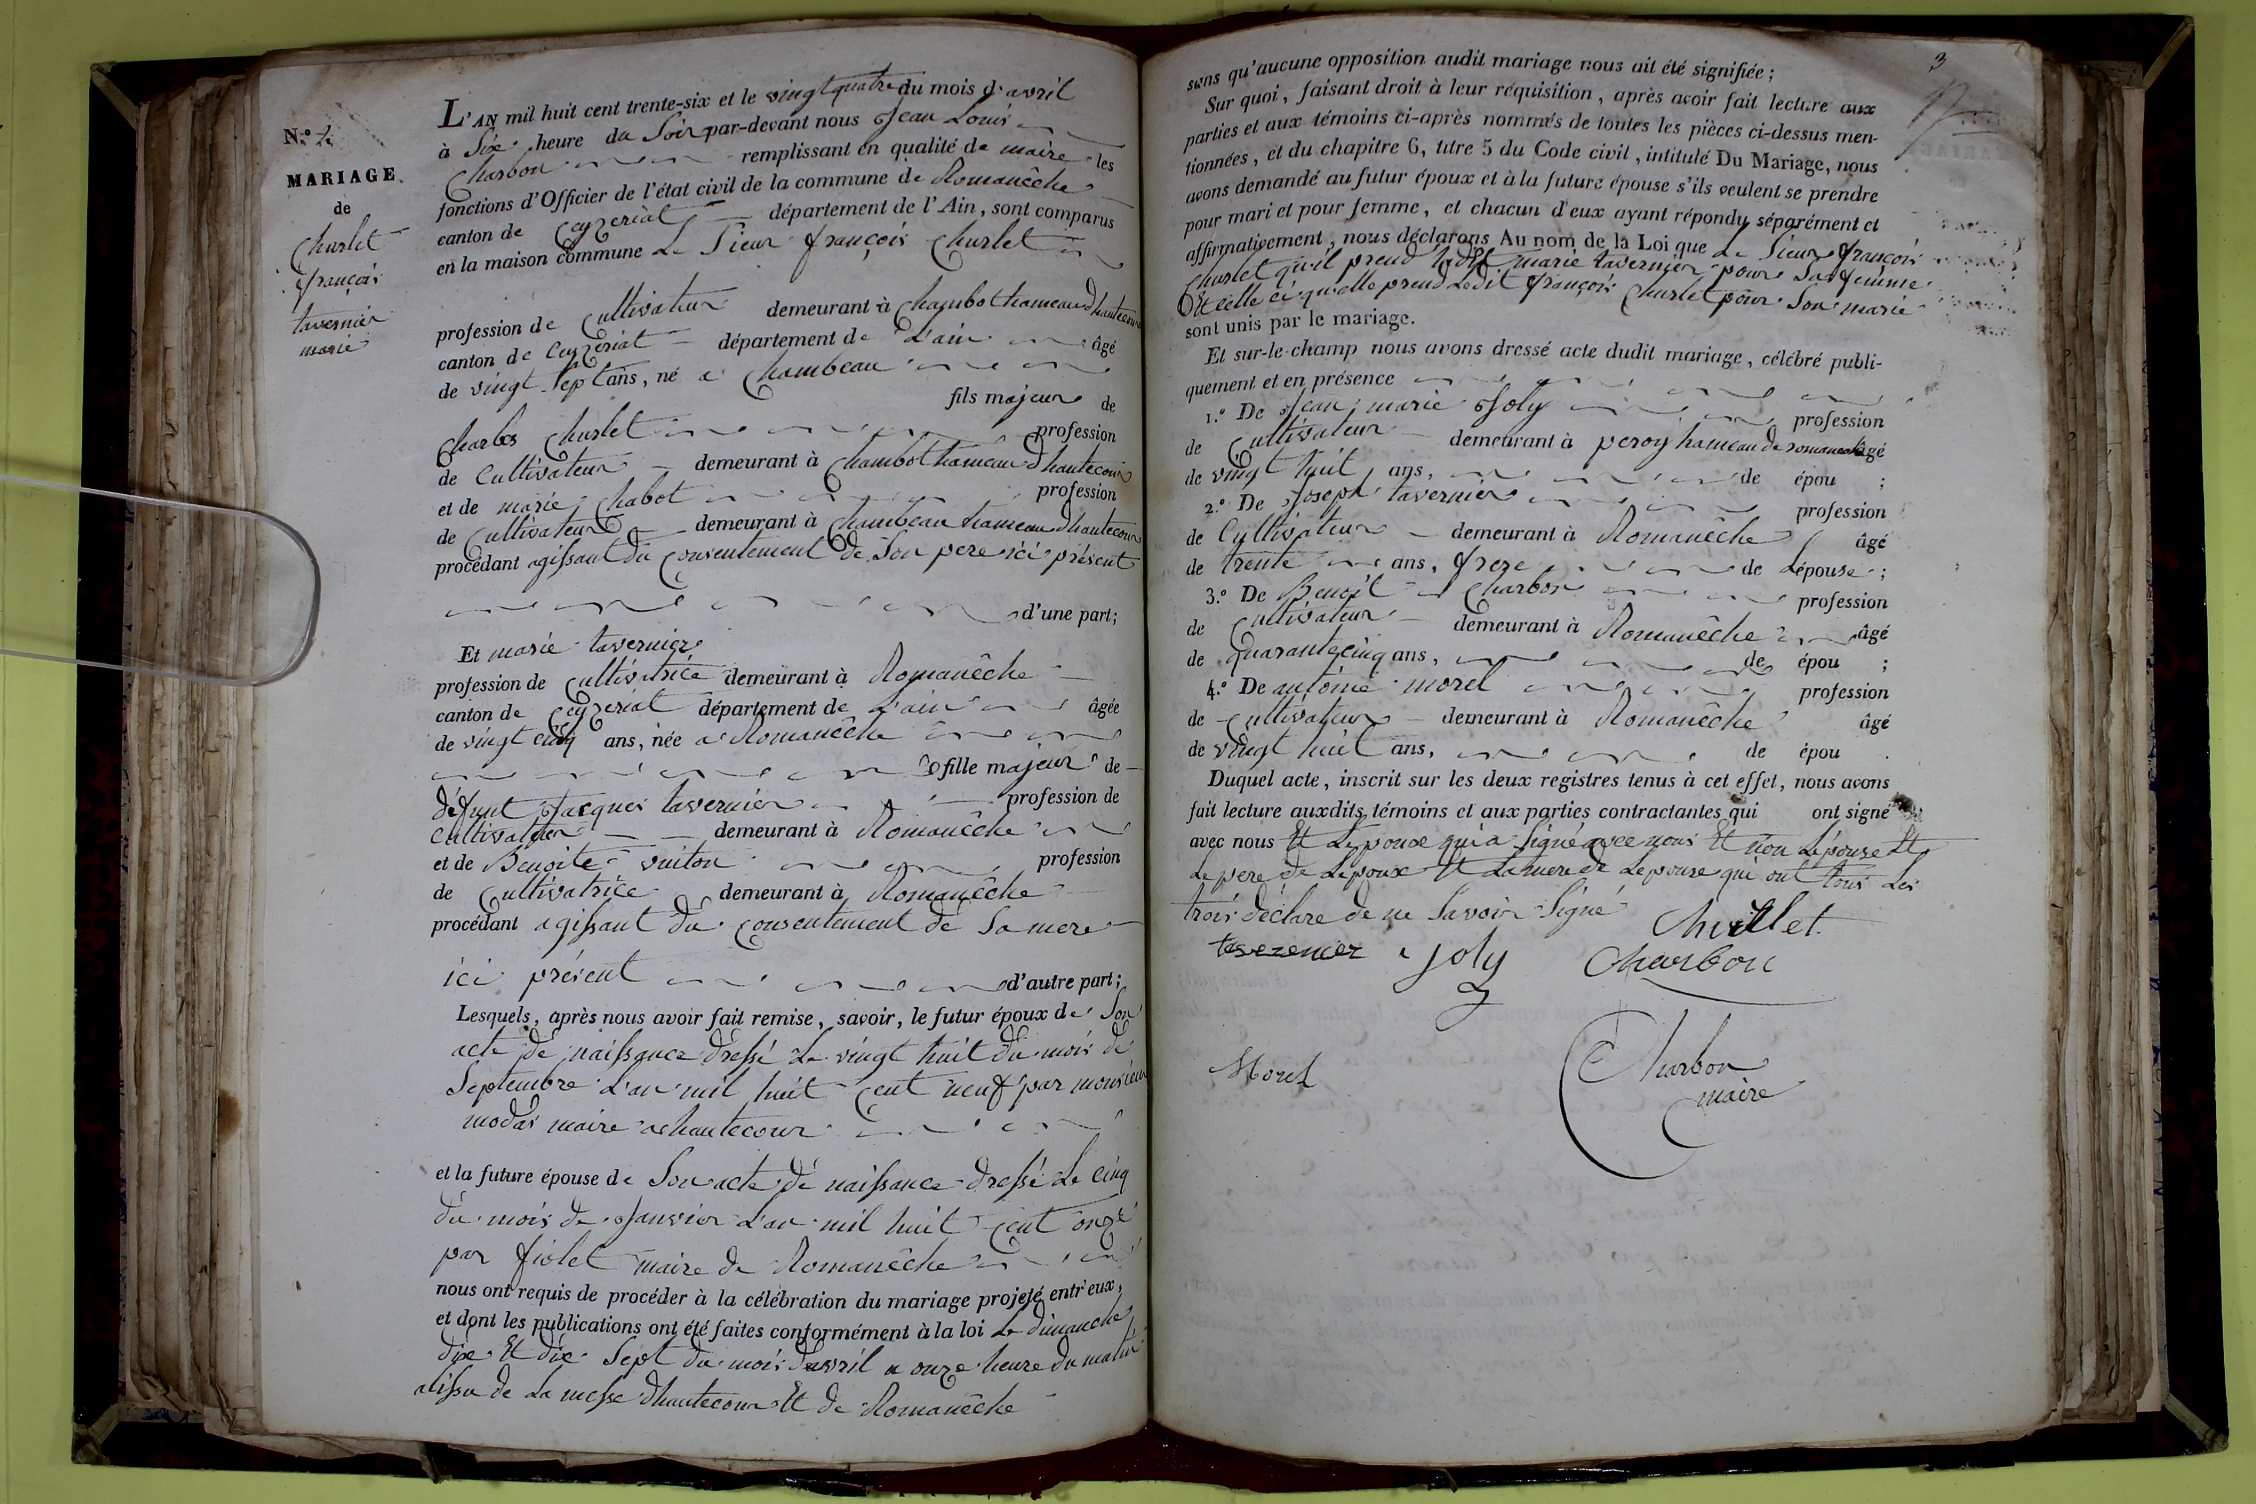 N.º 2
MARIAGE
de
Churlet
françois
tavernier
marie
L'AN mil huit cent trente-six et le vingt quatre du mois d'avril
à Six heure du Soir par-devant nous Jean Louis
Charbon remplissant en qualité de maire les
fonctions d'Officier de l'état civil de la commune de Romanêche
canton de Ceyzeriat département de l'Ain, sont comparus
en la maison commune Le Sieur françois Churlet
profession de Cultivateur demeurant à Chambot hameau d'hautecour
canton de Ceyzeriat département de L'ain âgé
de vingt Sept ans, né a Chambeau
fils majeur de
Charles Churlet profession
de Cultivateur demeurant à Chambot hameau d'hautecour
et de marie Chabot profession
de Cultivateur demeurant à Chambeau hameau d'hautecour
procédant agissant du Consentement de Son pere ici présent
d'une part;
Et marie tavernier
profession de Cultivatrice demeurant à Romanêche
canton de Ceyzeriat département de L'ain âgée
de vingt cinq ans, née a Romanêche
fille majeur de
défunt Jacques tavernier profession de
Cultivateur demeurant à Romanêche
et de Benoite vuiton profession
de Cultivatrice demeurant à Romanêche
procédant agissant du consentement de Sa mere
ici présent d'autre part;
Lesquels, après nous avoir fait remise, savoir, le futur époux de Son
acte de naissance dressé Le vingt huit du mois de
Septembre L'an mil huit Cent neuf par monsieur
modas maire a hautecour
et la future épouse de Son acte de naissance dressé Le Cinq
du mois de Janvier L'an mil huit Cent onze
par fiolet maire de Romanêche
nous ont requis de procéder à la célébration du mariage projeté entr'eux,
et dont les publications ont été faites conformément à la loi Le dimanche
dix Et dix Sept du mois d'avril a onze heure du matin
alissu de La messe d'hautecour Et de Romanêche
3
sans qu'aucune opposition audit mariage nous ait été signifiée;
Sur quoi, faisant droit à leur réquisition, après avoir fait lecture aux
parties et aux témoins ci-après nommés de toutes les pièces ci-dessus men-
tionnées, et du chapitre 6, titre 5 du Code civil, intitulé Du Mariage, nous
avons demandé au futur époux et à la future épouse s'ils veulent se prendre
pour mari et pour femme, et chacun d'eux ayant répondu séparément et
affirmativement, nous déclarons Au nom de la Loi que Le Sieur françois
Churlet qu'il prend ladit marie tavernier pour Sa femme
Et celle ci qu'elle prend Ledit françois Churlet pour Son marie
sont unis par le mariage.
Et sur-le-champ nous avons dressé acte dudit mariage, célébré publi-
quement et en présence
1.º De Jean marie Joly profession
de Cultivateur demeurant à peroy hameau de romaneche âgé
de vingt huit ans, de épou ;
2.º De Joseph tavernier profession
de Cultivateur demeurant à Romanêche âgé
de trente ans, frere de Lépouse;
3.º De Benoit Charbon profession
de Cultivateur demeurant à Romanêche âgé
de quarante cinq ans, de épou ;
4.º De antoine morel profession
de Cultivateur demeurant à Romanêche âgé
de vingt huit ans, de épou .
Duquel acte, inscrit sur les deux registres tenus à cet effet, nous avons
fait lecture auxdits témoins et aux parties contractantes qui ont signé
avec nous Et Lepoux qui a Signé avec nous Et non Lépouse Et
Le pere de Lepoux Et La mere de Lepouse qui ont tous Les
trois declare de ne Savoir Signé
Churlet
taverenier Joly Charbon
Morel
Charbon
maire